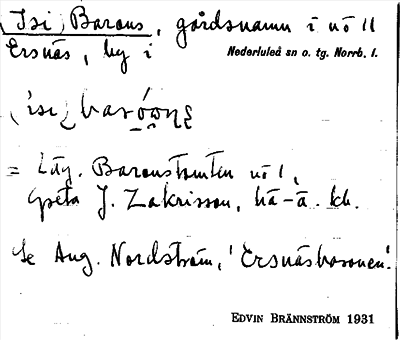 (Isi) Barons, gårdsnamn i nö 11
Ersnäs, by i
Nederluleå sn o. tg. Norrb. l.
= Läg. Baronstomten nö 1,
Greta J. Zakrisson, hä-ä. kb.
Se Aug. Nordström, 'Ersnäsbaronen'.
EDVIN BRÄNNSTRÖM 1931